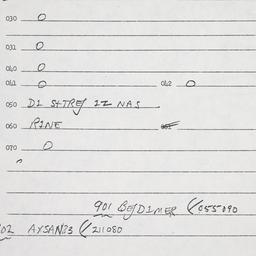 030 0
031 0
040 0
041 0 042 0
050 D1 S+TREJ 12 NAS
060 RINE
070 0
901 BEJDIMER (/055090
02 AYSAN23 (/211080